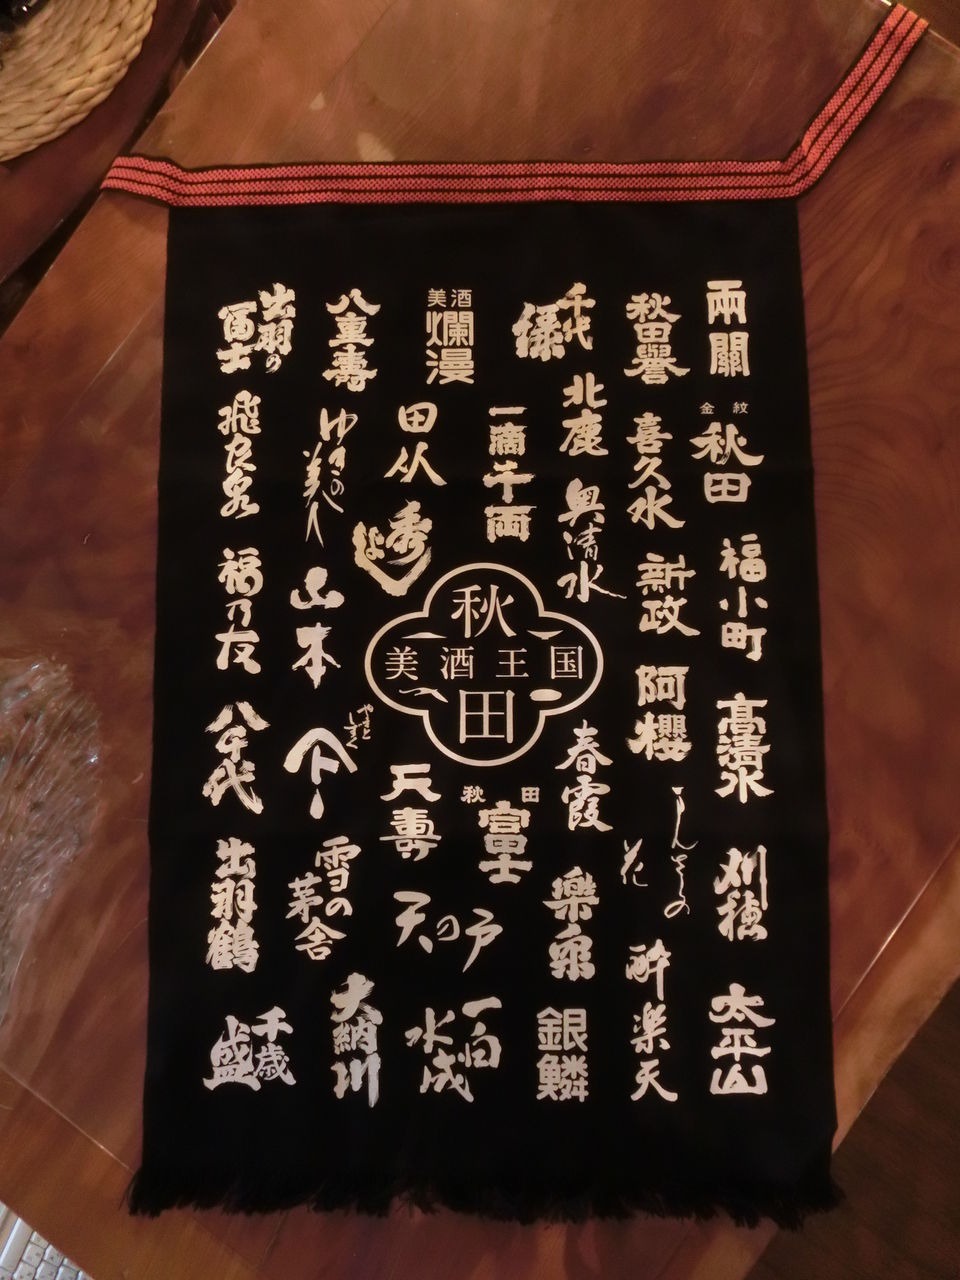 兩關
金紋
秋田
福小町
高清水
刈穂
太平山
秋田譽
喜久水
新政
阿櫻
まんさくの
花
酔楽天
千代
緑
北鹿
奥清水
春霞
樂泉
銀鱗
一滴千両
秋
美酒王国
田
秋田
富士
一白
水成
美酒
爛漫
田从
秀よし
天壽
天の戸
八重壽
ゆきの
美人
山本
やまと
しずく
雪の
茅舎
大納川
出羽の
冨士
飛良泉
福乃友
八千代
出羽鶴
千歳
盛